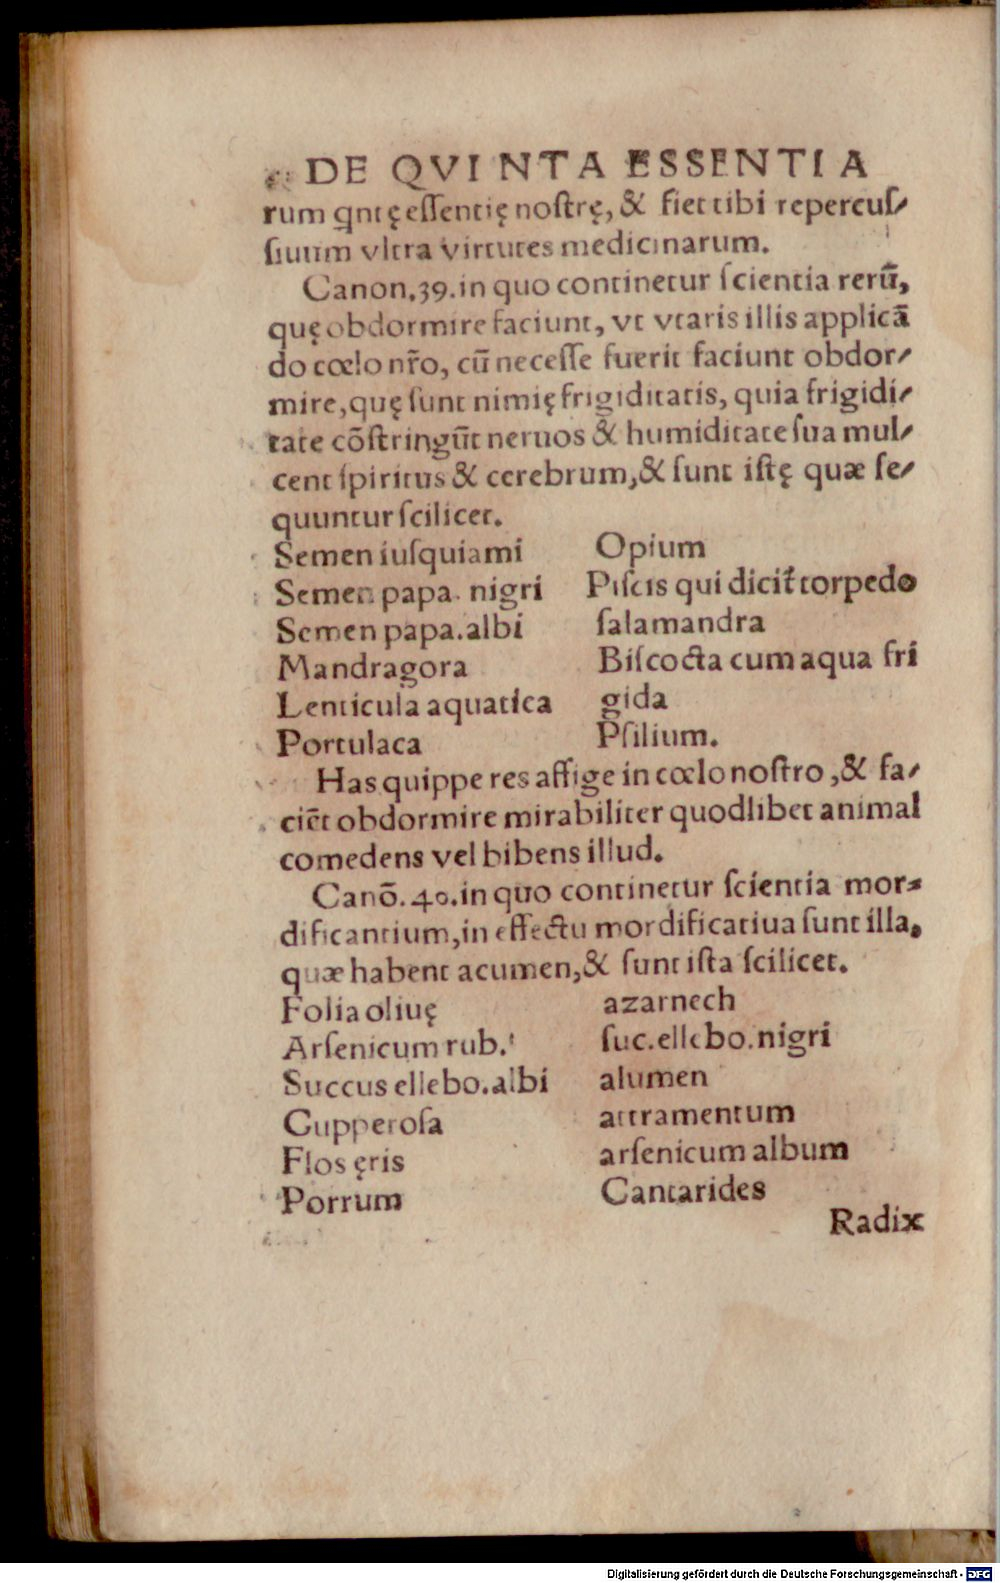 DE QVINTA ESSENTIA
rum qntę essentię nostrę, & fiet tibi repercus/
siuum vltra virtutes medicinarum.
Canon.39.in quo continetur scientia rerū,
quę obdormire faciunt, vt vtaris illis applicā
do cœlo nr̃o, cū necesse fuerit faciunt obdor/
mire, quę sunt nimię frigiditatis, quia frigidi/
tate cõstringūt neruos & humiditate sua mul/
cent spiritus & cerebrum, & sunt istę quæ se/
quuntur scilicet.
Semen iusquiami
Semen papa. nigri
Semen papa. albi
Mandragora
Lenticula aquatica
Portulaca
Opium
Piscis qui dicit̃ torpedo
salamandra
Biscocta cum aqua fri
gida
Psilium.
Has quippe res affige in cœlo nostro, & fa/
ciēt obdormire mirabiliter quodlibet animal
comedens vel bibens illud.
Canõ. 40. in quo continetur scientia mor=
dificantium, in effectu mordificatiua sunt illa,
quæ habent acumen, & sunt ista scilicet.
Folia oliuę
Arsenicum rub.
Succus ellebo. albi
Cupperosa
Flos ęris
Porrum
azarnech
suc. ellebo. nigri
alumen
attramentum
arsenicum album
Cantarides
Radix
Digitalisierung gefördert durch die Deutsche Forschungsgemeinschaft - DFG